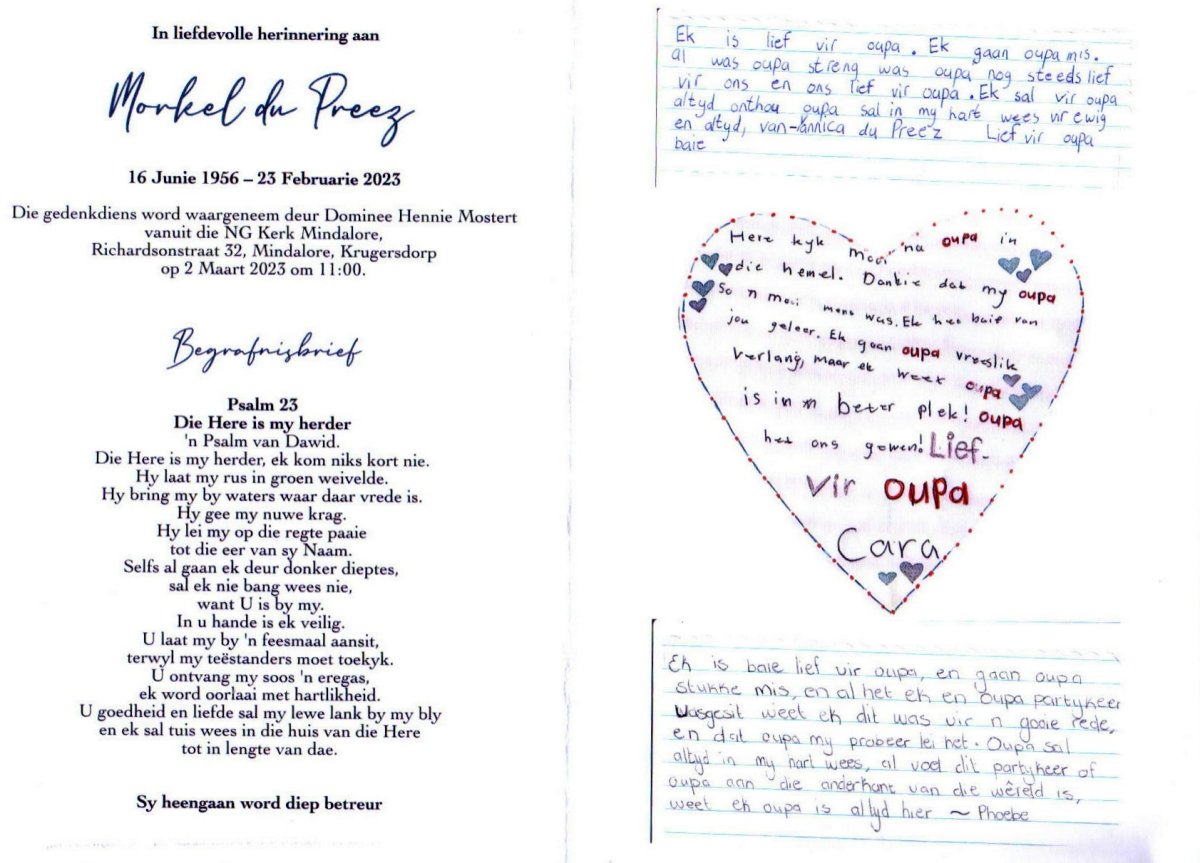 In liefdevolle herinnering aan
Morkel du Preez
16 Junie 1956 – 23 Februarie 2023
Die gedenkdiens word waargeneem deur Dominee Hennie Mostert
vanuit die NG Kerk Mindalore,
Richardsonstraat 32, Mindalore, Krugersdorp
op 2 Maart 2023 om 11:00.
Begrafnisbrief
Psalm 23
Die Here is my herder
'n Psalm van Dawid.
Die Here is my herder, ek kom niks kort nie.
Hy laat my rus in groen weivelde.
Hy bring my by waters waar daar vrede is.
Hy gee my nuwe krag.
Hy lei my op die regte paaie
tot die eer van sy Naam.
Selfs al gaan ek deur donker dieptes,
sal ek nie bang wees nie,
want U is by my.
In u hande is ek veilig.
U laat my by 'n feesmaal aansit,
terwyl my teëstanders moet toekyk.
U ontvang my soos 'n eregas,
ek word oorlaai met hartlikheid.
U goedheid en liefde sal my lewe lank by my bly
en ek sal tuis wees in die huis van die Here
tot in lengte van dae.
Sy heengaan word diep betreur
Ek is lief vir oupa. Ek gaan oupa mis.
al was oupa streng was oupa nog steeds lief
vir ons en ons lief vir oupa. Ek sal vir oupa
altyd onthou oupa sal in my hart wees vir ewig
en altyd, van-Jannica du Preez Lief vir oupa
baie
Here kyk mooi na oupa in
die hemel. Dankie dat my oupa
So 'n mooi mens was. Ek het baie van
jou geleer. Ek gaan oupa vreeslik
verlang, maar ek weet oupa
is in 'n beter plek! oupa
het ons gewen! Lief-
vir oupa
Cara
Ek is baie lief vir oupa, en gaan oupa
stukke mis, en al het ek en oupa partykeer
vasgesit weet ek dit was vir n goeie rede,
en dat oupa my probeer lei het. Oupa sal
altyd in my hart wees, al voel dit partykeer of
oupa aan die anderkant van die wêreld is,
weet ek oupa is altyd hier ~ Phoebe